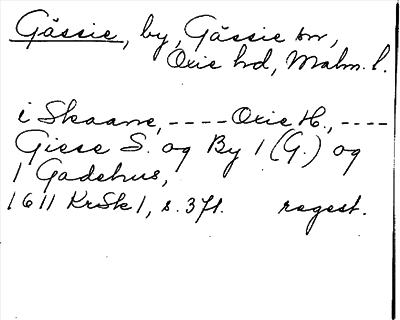 Gässie, by, Gässie sn,
Oxie hd, Malm. l.
i Skaane, ---- Oxie H., ----
Giese S. og By 1 (G.) og
1 Gadehus,
1611 KrSk 1, s. 37f. regest.